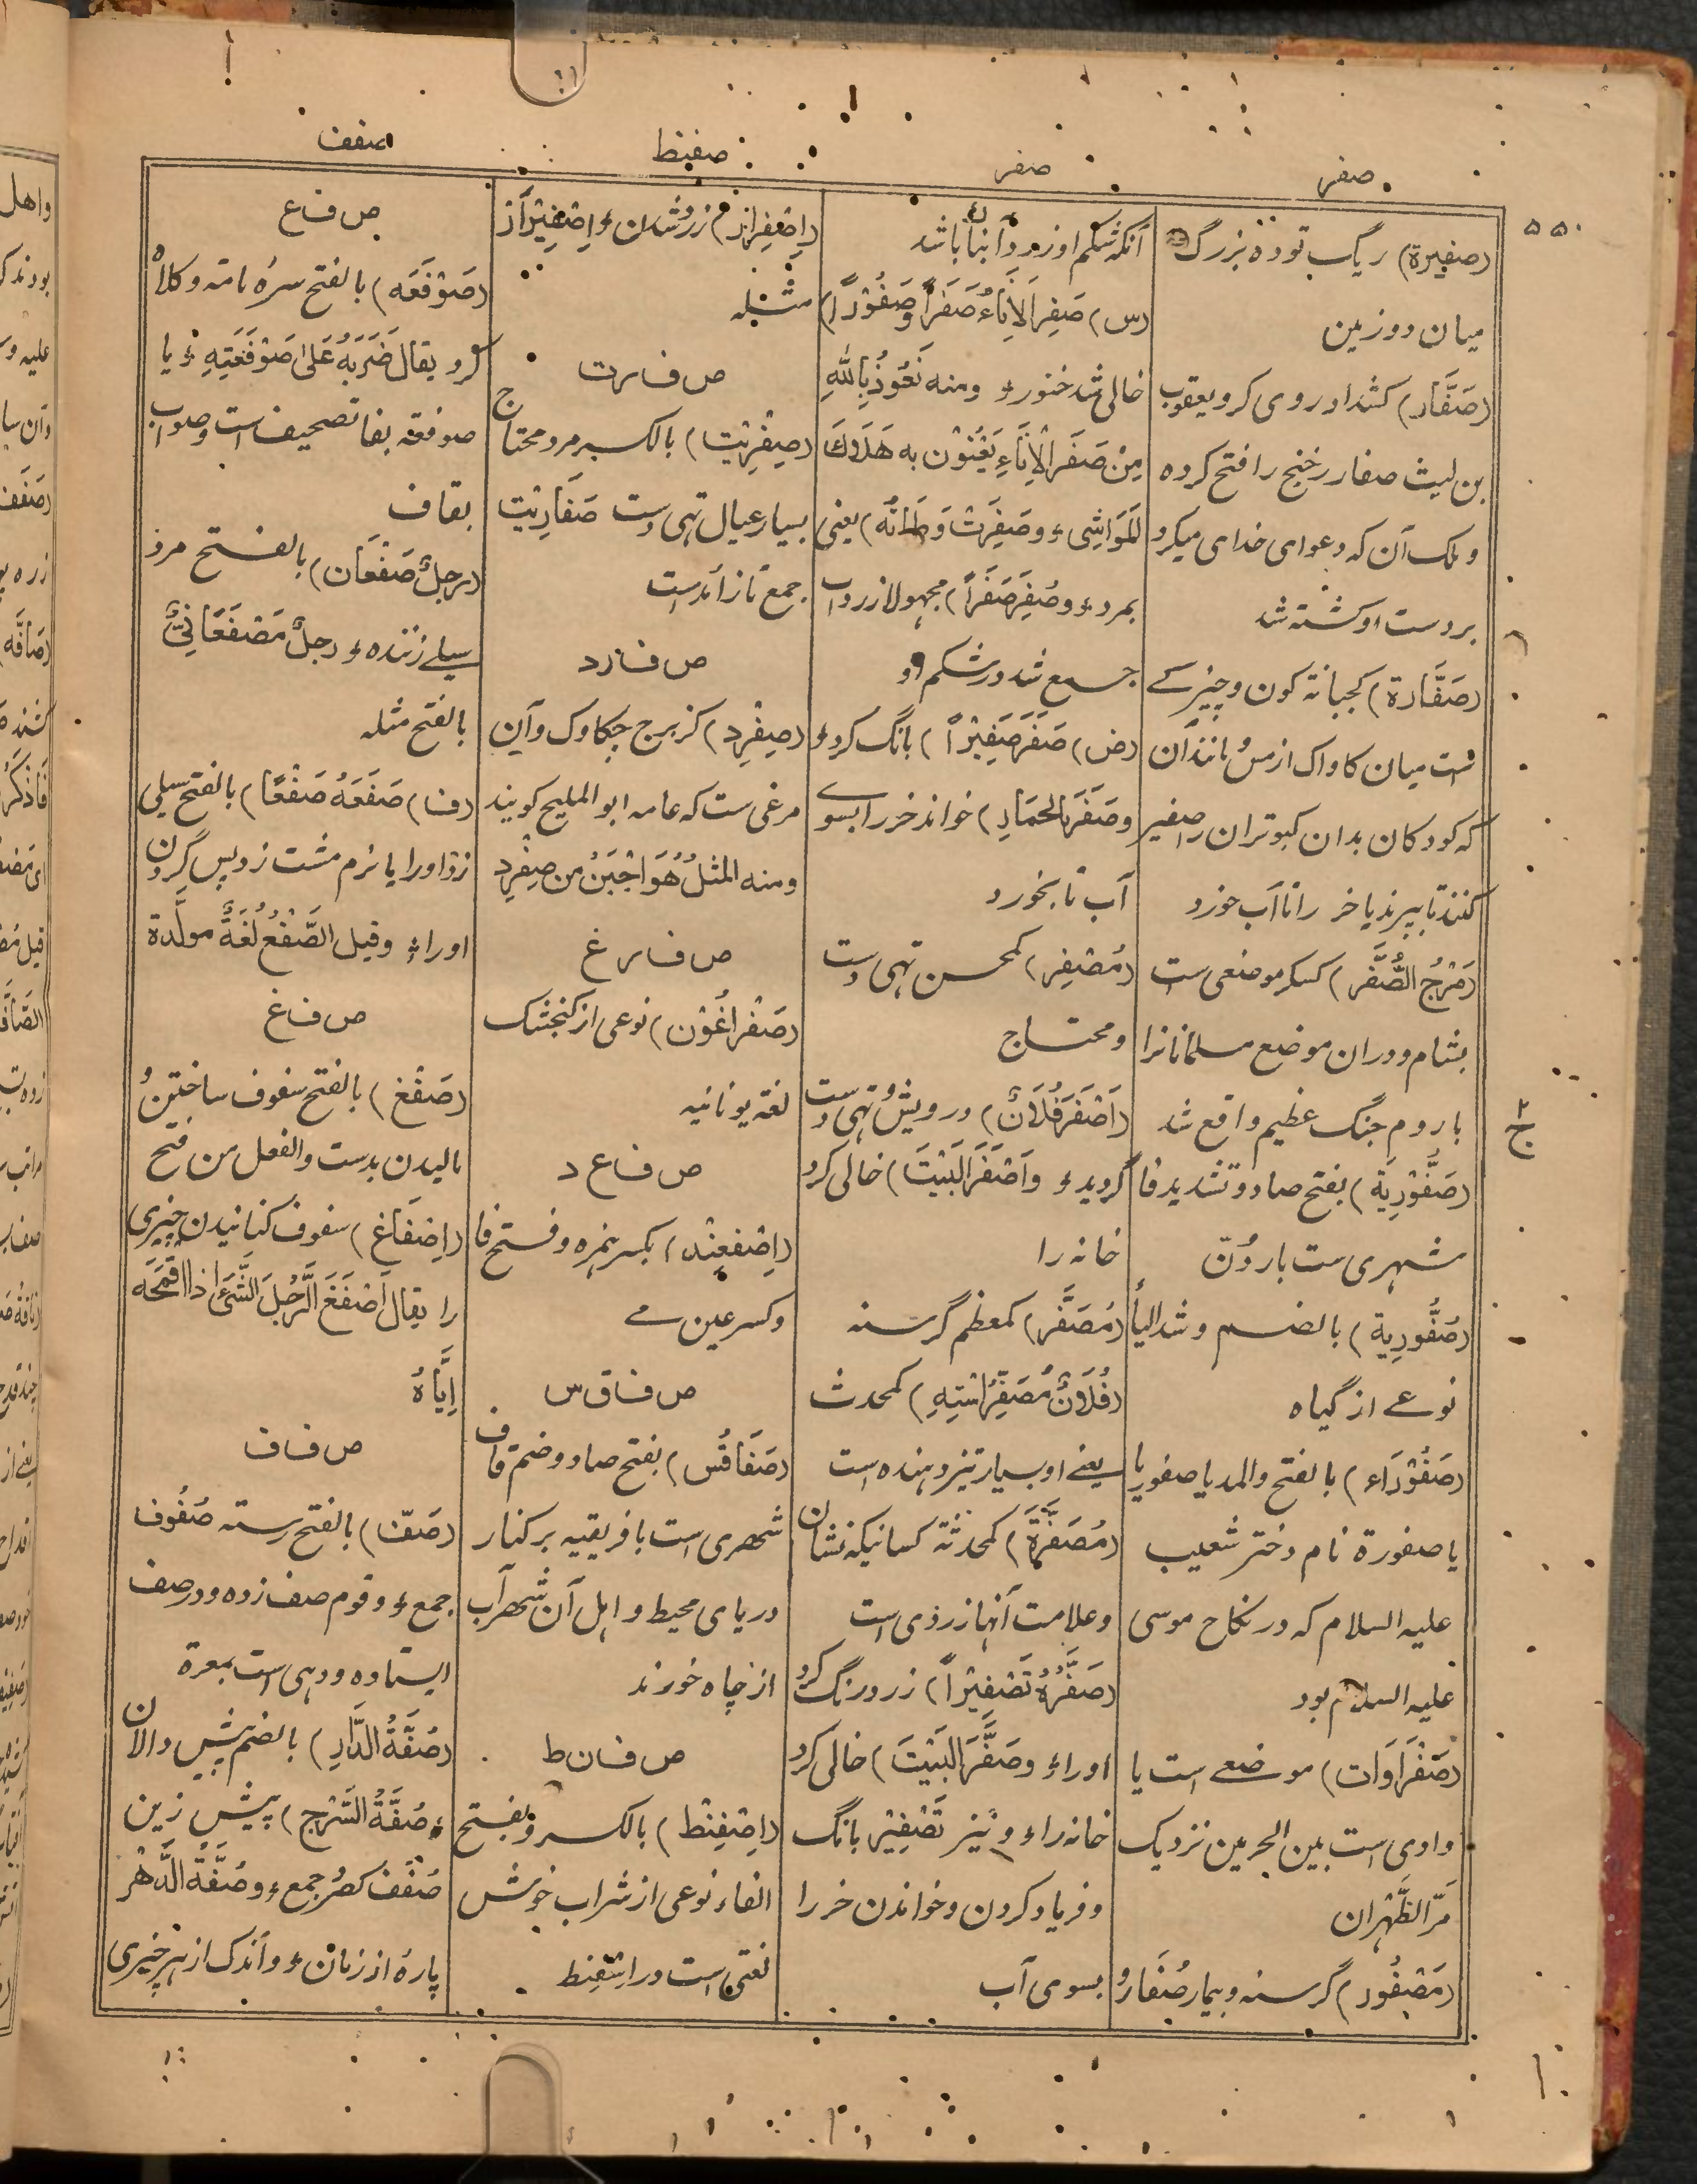 صفر
صفر
صفنط
صفف
۵۵۰
(صفیرة) ریگ توده بزرگ
میان دو زمین
(صَفَّار) کشداد روی گر و یعقوب
بن لیث صفار رخنج را فتح کرده
و ملک آن که دعوای خدای میکرد
بر دست او کشته شد
(صَفَّارة) کجبانة کون و چیزے
ست میان کاواک از مس مانند آن
که کودکان بدان کبوتران را صفیر
کنند تا بپرند یا خر را تا آب خورد
(مَرْجُ الصُّفَّر) کسکر موضعی ست
بشام و دران موضع مسلمانانرا
با روم جنگ عظیم واقع شد
(صَفُّوْرِیَة) بفتح صاد و تشدید فا
شهری ست باردُنّ
(صُفُّورِیة) بالضم و شد الیأ
نوعے از گیاه
(صَفُوْرَاء) بالفتح والمد یا صفوریا
یا صفورة نام دختر شعیب
علیه السلام که در نکاح موسی
علیه السلام بود
(صَفْرَاوَات) موضعے است یا
وادی است بین الحرمین نزدیک
مَرّ الظَّهْران
(مَصْفُور) گرسنه و بیمار صُفَار و
آنکه شکم او زرد آب ناک باشد
(س) صَفِرَ الْاِنَاءُ صَفَراً وصُفُوْرًا)
خالی شد خنور ء ومنه نَعُوْذُ بِاللّٰهِ
مِنْ صَفَرِ الْاِنَاءِ یَعْنُوْن به هَلَاكَ
الْمَوَاشِی ء وصَفِرَتْ وَطَابُهُ) یعنی
بمرد ء وصُفِرَ صَفَراً) مجهولا زرداب
جمع شد در شکم او
(ض) صَفَرَ صَفِیْرًا) بانگ کرد ء
وصَفَرَ بِالحِمَارِ) خواند خر را بسوے
آب تا بخورد
(مُصْفِر) کمحسن تهی دست
و محتاج
(اَصْفَرَ فُلَانٌ) درویش و تهی دست
گردید ء واَصْفَرَ الْبَیْتَ) خالی کرد
خانه را
(مُصَفَّر) کمعظم گرسنه
(فُلَانٌ مُصَفِّرُ اسْتِهِ) کمحدث
یعنے او بسیار تیز دهنده است
(مُصَفِّرَة) کمحدثة کسانیکه نشان
و علامت آنها زردی است
(صَفَّرَهُ تَصْفِیْراً) زرد رنگ کرد
او را ء وصَفَّرَ الْبَیْتَ) خالی کرد
خانه را ء و نیز تَصْفِیْر بانگ
و فریاد کردن و خواندن خر را
بسوی آب
(اِصْفِرَار) زرد شدن ء و اِصْفِیْرَار
مثله
ص ف ر ت
(صِفْرِیْت) بالکسر مرد محتاج
بسیار عیال تهی دست صَفَارِیْت
جمع تا زائد است
ص ف ر د
(صِفْرِد) کزبرج چکاوک و آن
مرغی ست که عامه ابو الملیح گویند
ومنه المثلُ هُوَ اَجْبَنُ من صِفْرِد
ص ف ر غ
(صَفْرَاغُوْن) نوعی از کنجشک
لغة یونانیه
ص ف ع د
(اِصْفَعِنْد) بکسر همزه و فتح فا
و کسر عین مے
ص ف ق س
(صَفَاقُس) بفتح صاد و ضم قاف
شهری است بافریقیه بر کنار
دریای محیط و اهل آن شهر آب
از چاه خورند
ص ف ن ط
(اِصْفِنْط) بالکسر و بفتح
الفاء نوعی از شراب خوش
لغتی است در اسْفِنْط
ص ف ع
(صَوْفَقَه) بالفتح سرهٔ نامة و کلاه
گرو یقال ضَرَبَهُ عَلیٰ صَوْفَقَتِهِ ء یا
صوفقه بفا تصحیف است و صواب
بقاف
(رجلٌ صَفْعَان) بالفتح مرد
سیلے زننده ء رجلٌ مَصْفَعَانِیٌّ
بالفتح مثله
(ف) صَفَعَهُ صَفْعًا) بالفتح سیلی
زد او را یا نرم مشت زد پس گردن
او را ء وقیل الصَّفْعُ لُغَةٌ مولَّدة
ص ف غ
(صَفْغ) بالفتح سفوف ساختن و
مالیدن بدست والفعل من فتح
(اِصْفَاغ) سفوف کنانیدن چیزی
را یقال اَصْفَغَ الرَّجُلَ الشَّیْءَ اذا اقمحه
اِیَّاهُ
ص ف ف
(صَفّ) بالفتح رسته صُفُوف
جمع ء و قوم صف زده و در صف
ایستاده و دهی است بمعرة
(صُفَّةُ الدَّارِ) بالضم پیش دالان
ء صُفَّةُ السَّرْجِ) پیش زین
صُفَف کصُرد جمع ء وصُفَّةُ الدَّهْر
پارهٔ از زمان ء و اندک از هر چیزی